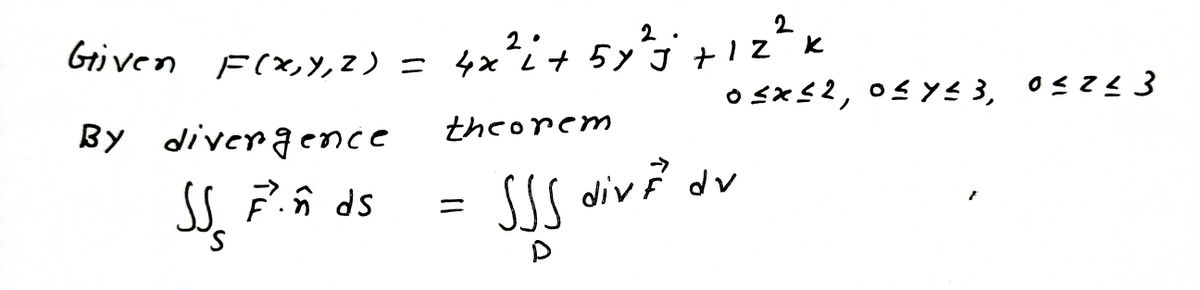 Given F(x,y,z) = 4x²i + 5y²j + 1z²k
0≤x≤2, 0≤y≤3, 0≤z≤3
By divergence theorem
∬_S F⃗.n̂ ds = ∭_D div F⃗ dv